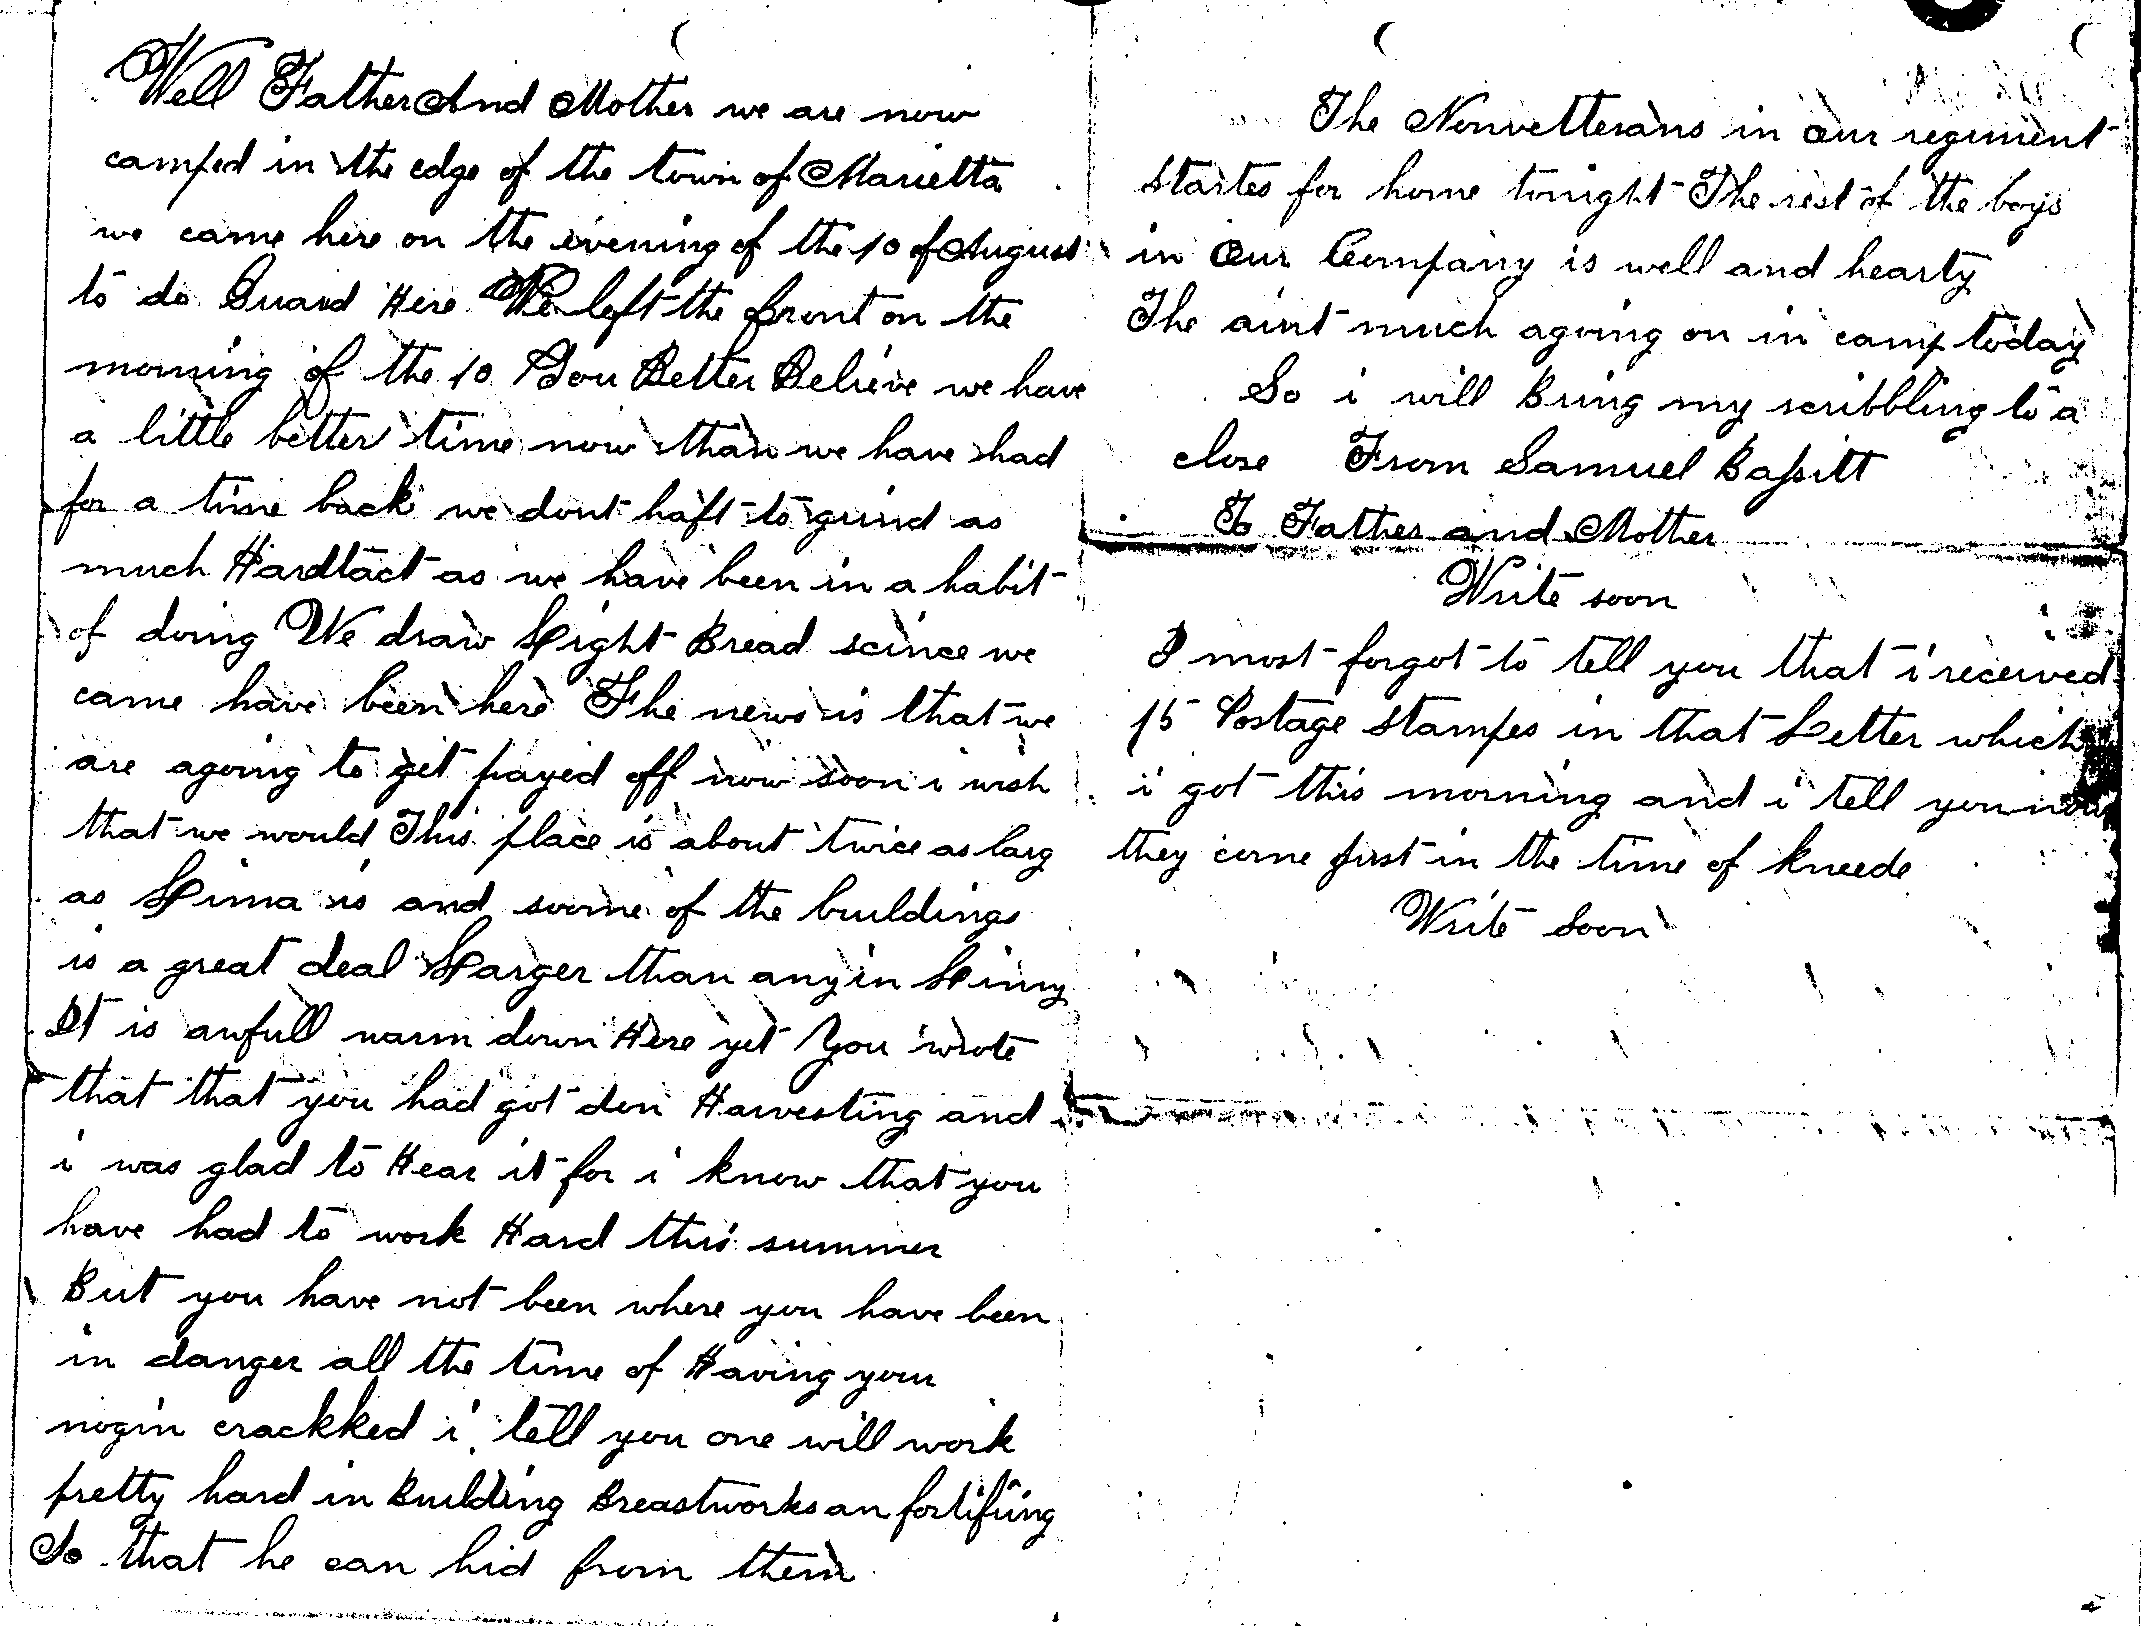 Well Father And Mother we are now
camped in the edge of the town of Marietta
we came here on the evening of the 10 of August
to do Guard Here We left the front on the
morning of the 10 You Better Believe we have
a little better time now than we have had
for a time back we dont haft to grind as
much Hardtact as we have been in a habit
of doing We draw Light Bread scince we
came have been here The news is that we
are agoing to get payed off now soon i wish
that we would This place is about twice as larg
as Lima is and soome of the buildings
is a great deal Larger than any in Limy
It is awfull warm down Here yet You wrote
that that you had got don Harvesting and
i was glad to Hear it for i know that you
have had to work Hard this summer
But you have not been where you have been
in danger all the time of Having your
nogin crackked i tell you one will work
pretty hard in Building Breastworks an fortifiing
So that he can hid from them
The Nonvetterans in our regiment
startes for home tonight The rest of the boys
in Our Company is well and hearty
The aint much agoing on in camp today
So i will Bring my scribbling to a
close From Samuel Bassitt
To Father and Mother
Write soon
I most forgot to tell you that i received
15 Postage stampes in that Letter which
i got this morning and i tell you now
they come just in the time of kneede
Write soon